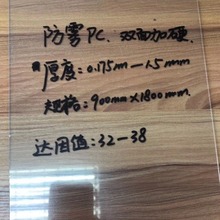 防雾PC.双面加硬
厚度:0.175m-1.5mm
规格:900mm×1800mm
达因值:32-38